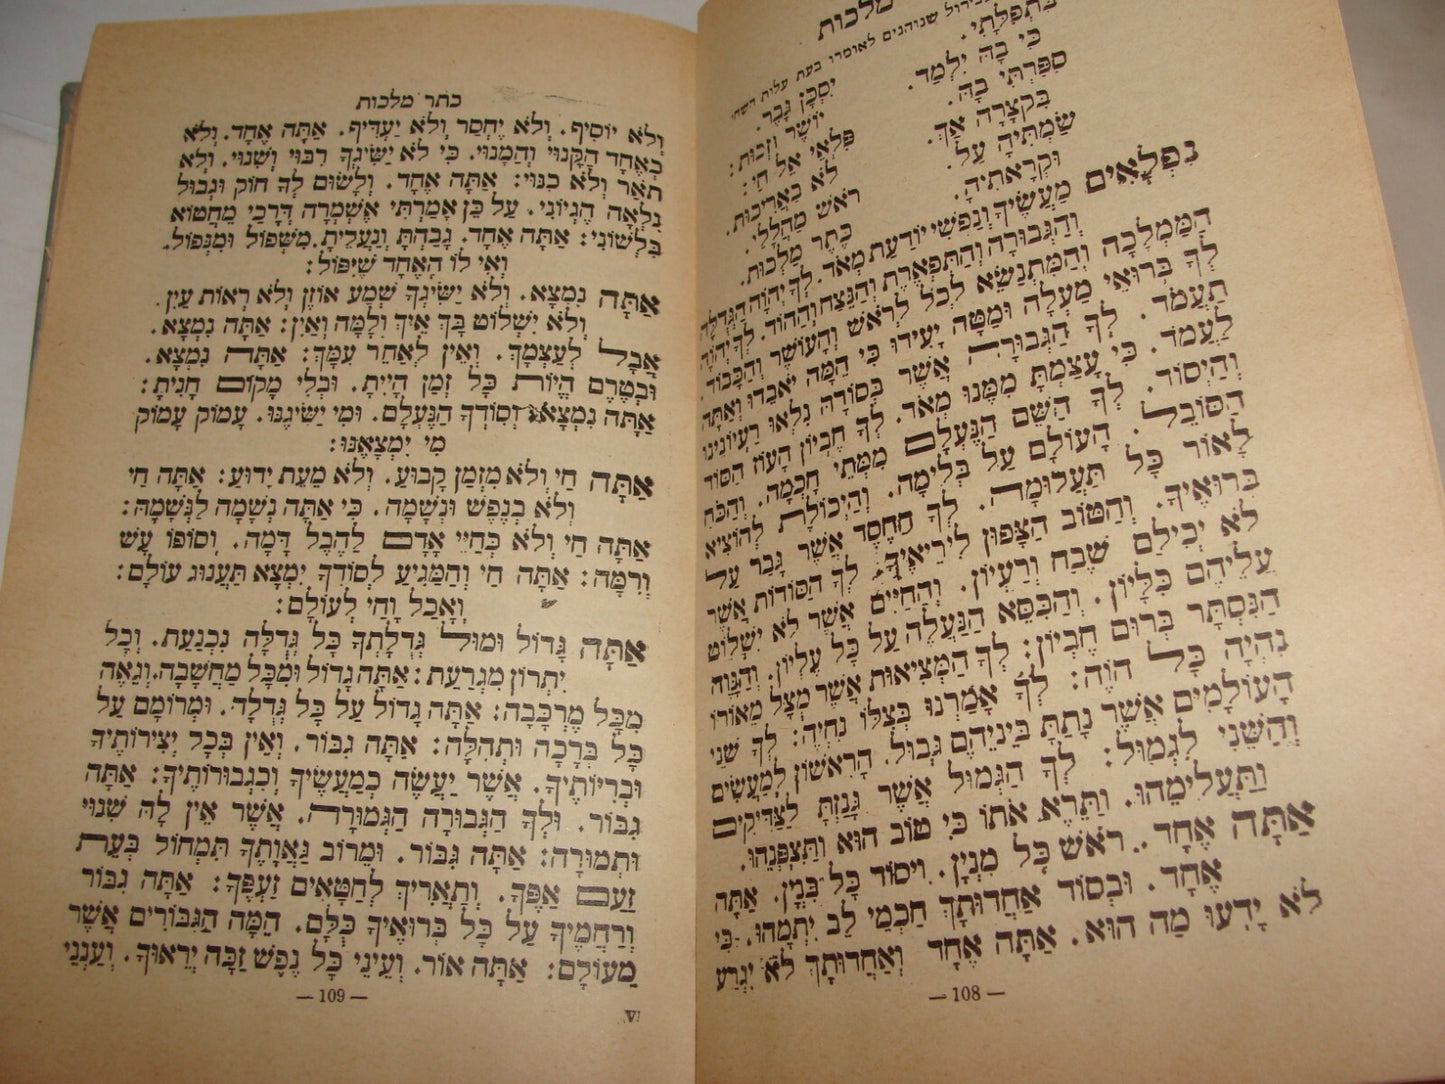 מלכות
שנוהגים לאומרו בעת עלות השח
בִּתְפִלָּתִי. יִסְכָּן גָּבֶר.
כִּי בָהּ יִלְמַד. יוֹשֶׁר וְזָכוּת:
סִפַּרְתִּי בָהּ. פִּלְאֵי אֵל חַי:
בִּקְצָרָה אָךְ. לֹא בַאֲרִיכוּת.
שַׂמְתִּיהָ עַל. רֹאשׁ מַהֲלָלַי.
וּקְרָאתִיהָ. כֶּתֶר מַלְכוּת.
נִפְלָאִים מַעֲשֶׂיךָ וְנַפְשִׁי יוֹדַעַת מְאֹד. לְךָ יְהוָה הַגְּדֻלָּה
וְהַגְּבוּרָה וְהַתִּפְאֶרֶת וְהַנֵּצַח וְהַהוֹד. לְךָ יְהוָה
הַמַּמְלָכָה וְהַמִּתְנַשֵּׂא לְכֹל לְרֹאשׁ וְהָעוֹשֶׁר וְהַכָּבוֹד.
לְךָ בְּרוּאֵי מַעְלָה וּמַטָּה יָעִידוּ כִּי הֵמָּה יֹאבֵדוּ וְאַתָּה
תַעֲמֹד. לְךָ הַגְּבוּרָה אֲשֶׁר בְּסוֹדָהּ נִלְאוּ רַעְיוֹנֵינוּ
לַעֲמֹד. כִּי עָצַמְתָּ מִמֶּנּוּ מְאֹד. לְךָ חֶבְיוֹן הָעוֹז הַסּוֹד
וְהַיְסוֹד. לְךָ הַשֵּׁם הַנֶּעְלָם מִמְּתֵי חָכְמָה. וְהַכֹּחַ
הַסּוֹבֵל הָעוֹלָם עַל בְּלִימָה. וְהַיְכוֹלֶת לְהוֹצִיא
לָאוֹר כָּל תַּעֲלוּמָה. לְךָ הַחֶסֶד אֲשֶׁר גָּבַר עַל
בְּרוּאֶיךָ. וְהַטּוֹב הַצָּפוּן לִירֵיאֶיךָ. לְךָ הַסּוֹדוֹת אֲשֶׁר
לֹא יְכִילֵם שֶׂבַח וְרַעְיוֹן. וְהַחַיִּים אֲשֶׁר לֹא יִשְׁלוֹט
עֲלֵיהֶם כִּלָּיוֹן. וְהַכִּסֵּא הַנַּעֲלֶה עַל כָּל עֶלְיוֹן. וְהַנָּוֶה
הַנִּסְתָּר בְּרוּם חֶבְיוֹן: לְךָ הַמְּצִיאוּת אֲשֶׁר מִצֵּל מְאוֹרוֹ
נִהְיָה כָּל הוֹוֶה: לְךָ אָמַרְנוּ בְּצִלּוֹ נִחְיֶה: לְךָ שְׁנֵי
הָעוֹלָמִים אֲשֶׁר נָתַתָּ בֵּינֵיהֶם גְּבוּל. הָרִאשׁוֹן לְמַעֲשִׂים
וְהַשֵּׁנִי לִגְמוּל: לְךָ הַגְּמוּל אֲשֶׁר גָּנַזְתָּ לַצַּדִּיקִים
וַתַּעֲלִימֵהוּ. וַתֵּרֶא אֹתוֹ כִּי טוֹב הוּא וַתִּצְפְּנֵהוּ.
אַתָּה אֶחָד. רֹאשׁ כָּל מִנְיָן. וִיסוֹד כָּל בִּנְיָן. אַתָּה
אֶחָד. וּבְסוֹד אַחְדוּתְךָ חַכְמֵי לֵב יִתְמָהוּ. כִּי
לֹא יָדְעוּ מַה הוּא. אַתָּה אֶחָד וְאַחְדוּתְךָ לֹא יִגְרַע
— 108 —
כתר מלכות
וְלֹא יוֹסִיף. וְלֹא יֶחְסַר וְלֹא יַעְדִּיף. אַתָּה אֶחָד. וְלֹא
כְאֶחָד הַקָּנוּי וְהַמָּנוּי. כִּי לֹא יַשִּׂיגְךָ רִבּוּי וְשִׁנּוּי. וְלֹא
תֹאַר וְלֹא כִנּוּי: אַתָּה אֶחָד. וְלָשׂוּם לְךָ חוֹק וּגְבוּל
נִלְאָה הֶגְיוֹנִי. עַל כֵּן אָמַרְתִּי אֶשְׁמְרָה דְרָכַי מֵחֲטוֹא
בִלְשׁוֹנִי: אַתָּה אֶחָד. גָּבַהְתָּ וְנַעֲלֵיתָ מִשְּׁפוֹל וּמִנְּפוֹל.
וְאִי לוֹ הָאֶחָד שֶׁיִּפּוֹל:
אַתָּה נִמְצָא. וְלֹא יַשִּׂיגְךָ שֵׁמַע אוֹזֶן וְלֹא רְאוֹת עַיִן.
וְלֹא יִשְׁלוֹט בָּךְ אֵיךְ וְלָמָּה וְאַיִן: אַתָּה נִמְצָא.
אֲבָל לְעַצְמָךְ. וְאֵין לְאַחֵר עִמָּךְ: אַתָּה נִמְצָא.
וּבְטֶרֶם הֱיוֹת כָּל זְמַן הָיִיתָ. וּבְלִי מָקוֹם חָנִיתָ:
אַתָּה נִמְצָא. וְסוֹדְךָ הַנֶּעְלָם. וּמִי יַשִּׂיגֶנּוּ. עָמוֹק עָמוֹק
מִי יִמְצָאֶנּוּ:
אַתָּה חַי וְלֹא מִזְּמַן קָבוּעַ. וְלֹא מֵעֵת יָדוּעַ: אַתָּה חַי
וְלֹא בְנֶפֶשׁ וּנְשָׁמָה. כִּי אַתָּה נְשָׁמָה לַנְּשָׁמָה:
אַתָּה חַי וְלֹא כְּחַיֵּי אָדָם לַהֶבֶל דָּמָה. וְסוֹפוֹ עָשׁ
וְרִמָּה: אַתָּה חַי וְהַמַּגִּיעַ לְסוֹדְךָ יִמְצָא תַּעֲנוּג עוֹלָם:
וְאָכַל וָחַי לְעוֹלָם:
אַתָּה גָּדוֹל וּמוּל גְּדֻלָּתְךָ כָּל גְּדֻלָּה נִכְנַעַת. וְכָל
יִתְרוֹן מִגְרַעַת: אַתָּה גָדוֹל וּמִכָּל מַחֲשָׁבָה. וְגֵאֶה
מִכָּל מֶרְכָּבָה: אַתָּה גָדוֹל עַל כָּל גְּדֻלָּה. וּמְרוֹמָם עַל
כָּל בְּרָכָה וּתְהִלָּה: אַתָּה גִבּוֹר. וְאֵין בְּכָל יְצִירוֹתֶיךָ
וּבְרִיּוֹתֶיךָ. אֲשֶׁר יַעֲשֶׂה כְמַעֲשֶׂיךָ וְכִגְבוּרוֹתֶיךָ: אַתָּה
גִבּוֹר. וּלְךָ הַגְּבוּרָה הַגְּמוּרָה. אֲשֶׁר אֵין לָהּ שִׁנּוּי
וּתְמוּרָה: אַתָּה גִּבּוֹר. וּמֵרוֹב גַּאֲוָתְךָ תִּמְחוֹל בְּעֵת
זַעַם אַפֶּךָ. וְתַאֲרִיךְ לְחַטָּאִים זַעְפֶּךָ: אַתָּה גִבּוֹר
וְרַחֲמֶיךָ עַל כָּל בְּרוּאֶיךָ כֻּלָּם. הֵמָּה הַגִּבּוֹרִים אֲשֶׁר
מֵעוֹלָם: אַתָּה אוֹר. וְעֵינֵי כָּל נֶפֶשׁ זַכָּה יִרְאוּךָ. וְעַנְנֵי
— 109 —